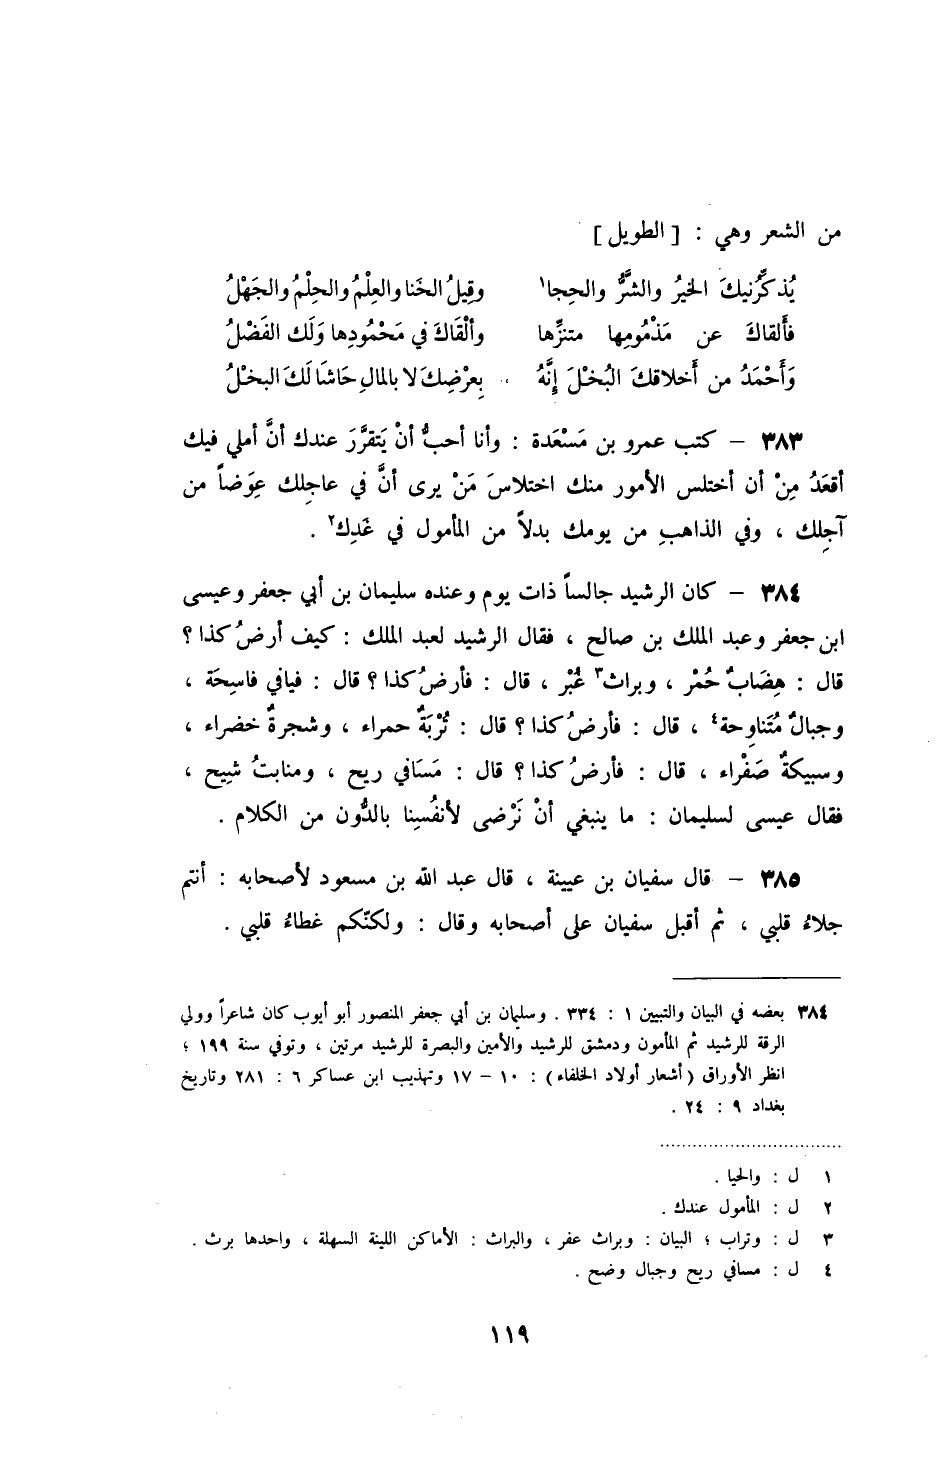 من الشعر وهي : [ الطويل ]
يُذكِّرنيكَ الخيرُ والشرُّ والحِجا١ وقِيلُ الخَنا والعِلْمُ والحِلْمُ والجَهْلُ
فأَلقاكَ عن مَذْمُومِها متنزِّها وألْقَاكَ في مَحْمُودِها وَلَك الفَضْلُ
وَأَحْمَدُ من أَخلاقكَ البُخْلَ إِنَّهُ بِعرْضِكَ لا بالمالِ حَاشَا لَكَ البخْلُ
٣٨٣ – كتب عمرو بن مَسْعَدة : وأنا أحبُّ أنْ يَتقرَّرَ عندك أنَّ أملي فيك
أقعَدُ مِنْ أن أختلس الأمور منك اختلاسَ مَنْ يرى أنَّ في عاجِلك عِوَضاً من
آجِلك ، وفي الذاهبِ من يومك بدلاً من المأمول في غَدِك٢ .
٣٨٤ – كان الرشيد جالساً ذات يوم وعنده سليمان بن أبي جعفر وعيسى
ابن جعفر وعبد الملك بن صالح ، فقال الرشيد لعبد الملك : كيف أرضُ كذا ؟
قال : هِضَابٌ حُمْر ، وبراث٣ غُبْر ، قال : فأرضُ كذا ؟ قال : فيافي فاسِحَة ،
وجبالٌ مُتَناوِحة٤ ، قال : فأرضُ كذا ؟ قال : تُرْبَةٌ حمراء ، وشجرةٌ خضراء ،
وسبيكةٌ صَفْراء ، قال : فأرضُ كذا ؟ قال : مَسَافي ريح ، ومنابتُ شِيح ،
فقال عيسى لسليمان : ما ينبغي أنْ نَرْضى لأنفُسِنا بالدُّون من الكلام .
٣٨٥ – قال سفيان بن عيينة ، قال عبد الله بن مسعود لأصحابه : أنتم
جلاءُ قلبي ، ثم أقبل سفيان على أصحابه وقال : ولكنّكم غطاءُ قلبي .
٣٨٤ بعضه في البيان والتبيين ١ : ٣٣٤ . وسليمان بن أبي جعفر المنصور أبو أيوب كان شاعراً وولي
الرقة للرشيد ثم المأمون ودمشق للرشيد والأمين والبصرة للرشيد مرتين ، وتوفي سنة ١٩٩ ؛
انظر الأوراق ( أشعار أولاد الخلفاء ) : ١٠ – ١٧ وتهذيب ابن عساكر ٦ : ٢٨١ وتاريخ
بغداد ٩ : ٢٤ .
١ ل : والحيا .
٢ ل : المأمول عندك .
٣ ل : وتراب ؛ البيان : وبراث عفر ، والبراث : الأماكن اللينة السهلة ، واحدها برث .
٤ ل : مسافي ريح وجبال وضح .
١١٩